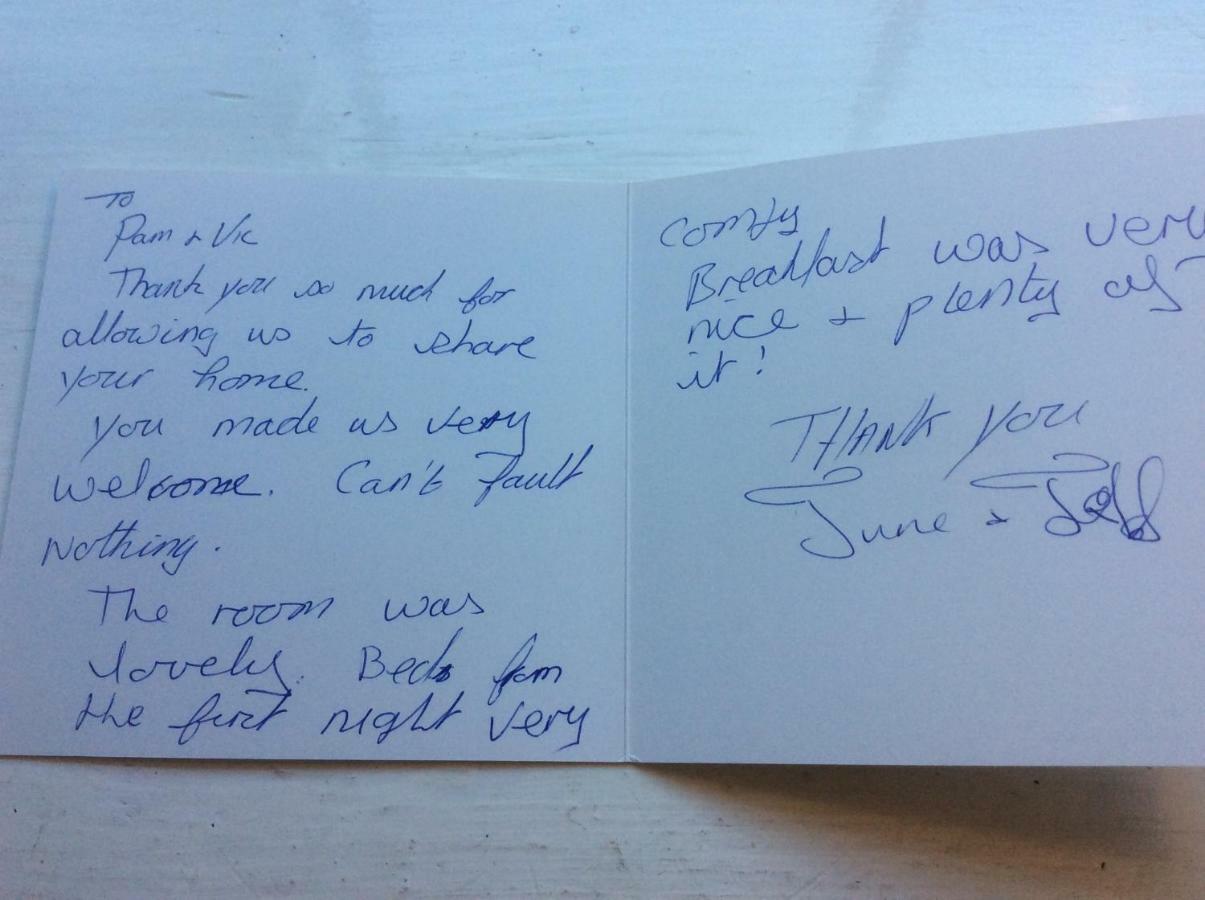 To
Pam + Vic
Thank you so much for
allowing us to share
your home.
you made us very
welcome. Can't fault
Nothing.
The room was
lovely. Beds from
the first night very
comfy
Breakfast was very
nice + plenty of
it!
THANK you
June + Jeff